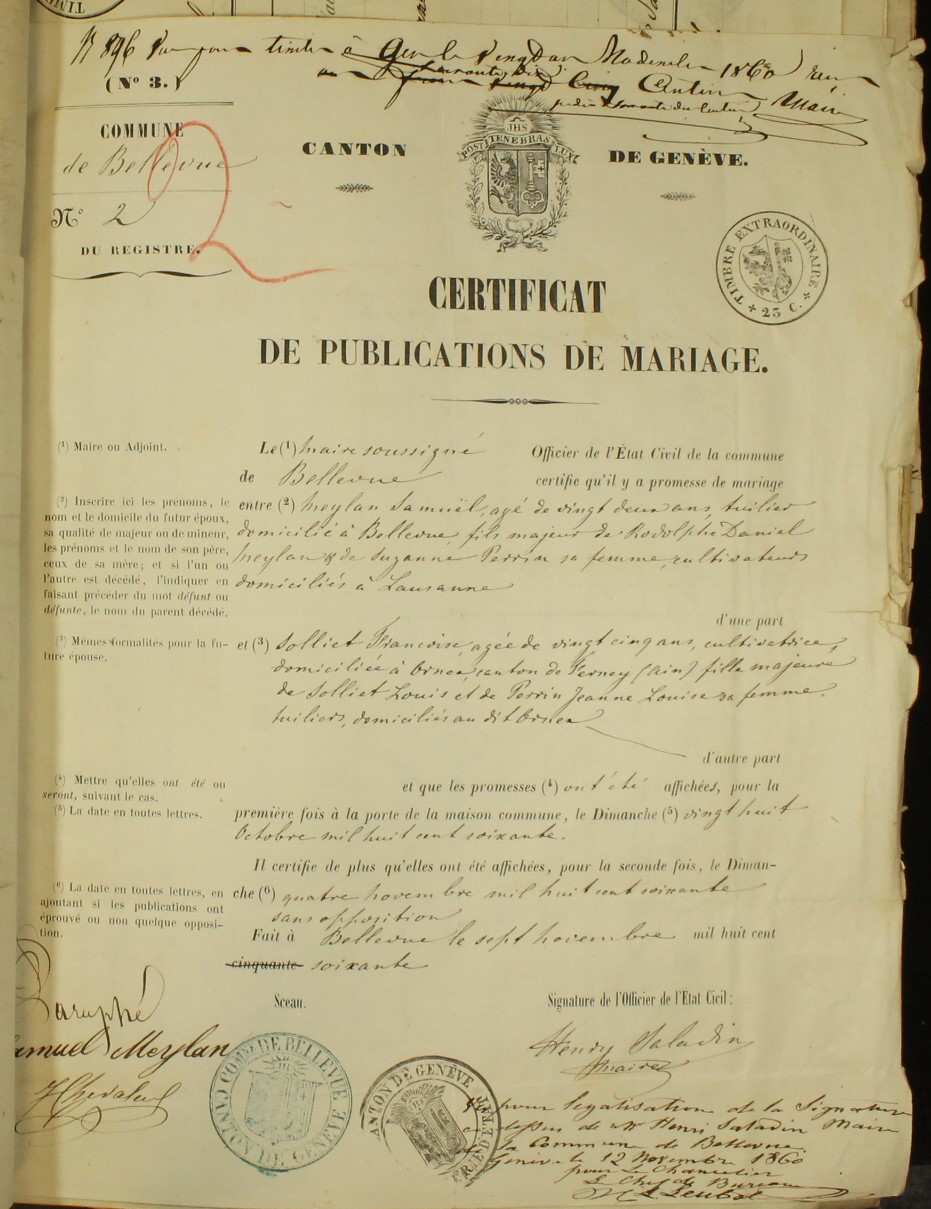 timbre à
1860
(N° 3.)
COMMUNE
de Bellevue
N° 2
DU REGISTRE.
2
CANTON DE GENÈVE.
JHS
POST TENEBRAS LUX
TIMBRE EXTRAORDINAIRE
* 25 C. *
CERTIFICAT
DE PUBLICATIONS DE MARIAGE.
(1) Maire ou Adjoint.
Le (1) Maire soussigné Officier de l'État Civil de la commune
de Bellevue certifie qu'il y a promesse de mariage
(2) Inscrire ici les prénoms, le
nom et le domicile du futur époux,
sa qualité de majeur ou de mineur,
les prénoms et le nom de son père,
ceux de sa mère; et si l'un ou
l'autre est décédé, l'indiquer en
faisant précéder du mot défunt ou
défunte, le nom du parent décédé.
entre (2) Meylan Samuël, agé de vingt deux ans, tuilier
domicilié à Bellevue fils majeur de Rodolphe Daniel
Meylan & de Suzanne Perrin sa femme, cultivateurs
domiciliés à Lausanne
d'une part
(3) Mêmes formalités pour la fu-
ture épouse.
et (3) Solliet Francoise, agée de vingt cinq ans, cultivatrice,
domiciliée à Ornex canton de Ferney (Ain) fille majeure
de Solliet Louis et de Perrin Jeanne Louise sa femme
tuiliers, domiciliés au dit Ornex
d'autre part
(4) Mettre qu'elles ont été ou
seront, suivant le cas.
(5) La date en toutes lettres.
et que les promesses (4) ont été affichées, pour la
première fois à la porte de la maison commune, le Dimanche (5) vingt huit
Octobre mil huit cent soixante.
Il certifie de plus qu'elles ont été affichées, pour la seconde fois, le Diman-
(6) La date en toutes lettres, en
ajoutant si les publications ont
éprouvé ou non quelque opposi-
tion.
che (6) quatre novembre mil huit cent soixante
sans opposition
Fait à Bellevue le sept novembre mil huit cent
cinquante soixante
Sceau.
Signature de l'Officier de l'État Civil:
Paraphé
Samuel Meylan
Henry Saladin
maire
COMne DE BELLEVUE
CANTON DE GENÈVE
CANTON DE GENÈVE
pour légalisation de la Signature
de Mr Henri Saladin Maire
la Commune de Bellevue
Genève le 12 Novembre 1860
pour Le Chancelier
Le Chef de Bureau